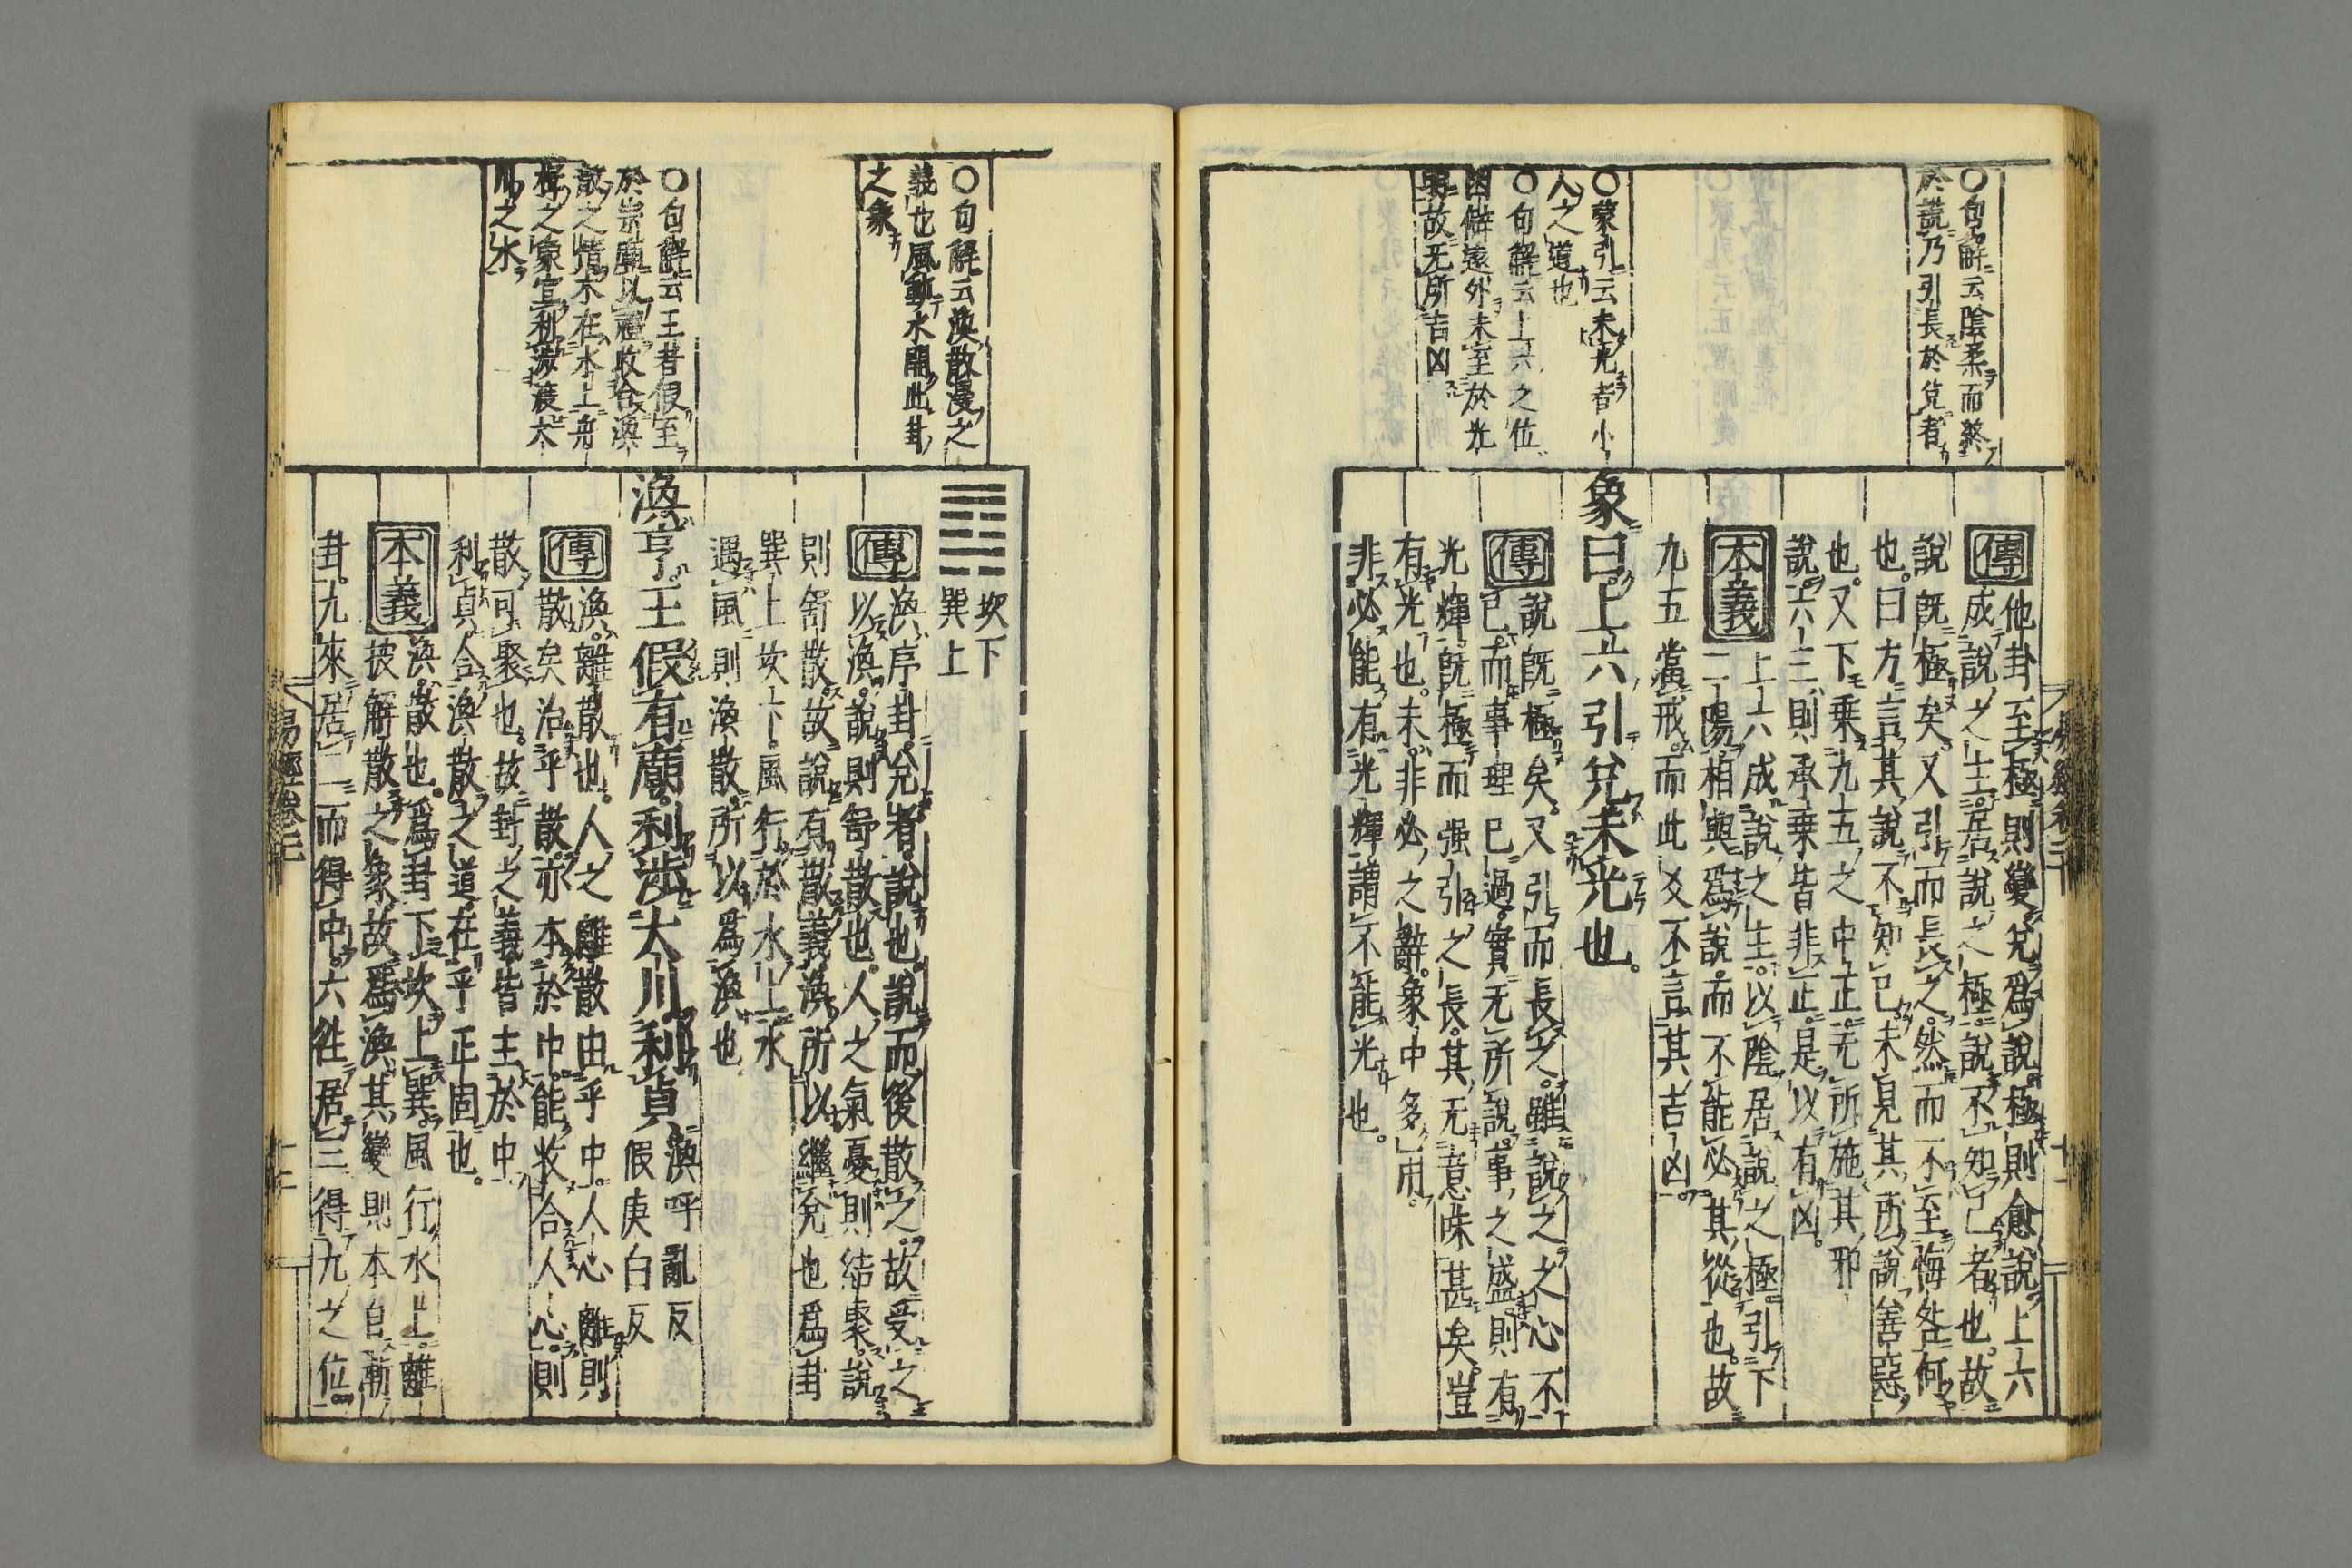 〇句解云陰柔而終
於說乃引長於兌者
〇蒙引云未光者小
人之道也
〇句解云上六之位
僻遠外未至於光
故无所吉凶
易經卷二十一
傳
他卦至極則變兌爲說極則愈說上六
成說之主居說之極說不知已者也。故
說既極矣。又引而長之。然而不至悔咎何
也。曰方言其說不知已。未見其所說善惡
也。又下乘九五之中正。无所施其邪
說。六三則承乘皆非正。是以有凶。
本義
上六成說之主。以陰居說之極。引下
二陽相與爲說。而不能必其從也。故
九五當戒。而此爻不言其吉凶。
象曰。上六引兌未光也。
傳
說既極矣。又引而長之。雖說之之心不
已。而事理已過。實无所說。事之盛則有
光輝。既極而强引之長。其无意味甚矣。豈
有光也。未。非必之辭。象中多用。
非必能有光輝。謂不能光也。
〇句解云渙散漫之
義也風動水開此卦
之象
〇句解云王者假至
於宗廟以禮收合渙
散之情木在水上舟
楫之象宜利渉渡大
川之水
坎下
巽上
傳
渙序卦。兌者。說也。說而後散之。故受之
以渙。說則舒散也。人之氣憂則結聚。說
則舒散。故說有散義。渙所以繼兌也爲卦
巽上坎下。風行於水上。水
遇風則渙散。所以爲渙也
渙亨。王假有廟。利渉大川。利貞
渙呼亂反
假庚白反
傳
渙。離散也。人之離散由乎中。人心離則
散矣治乎散。亦本於中。能收合人心。則
散可聚也。故卦之義皆主於中
利貞合渙散之道。在乎正固也。
本義
渙。散也。爲卦下坎上巽。風行水上。離
披解散之象。故爲渙其變則本自漸
卦。九來居二而得中。六往居三得九之位。
易經卷二十一